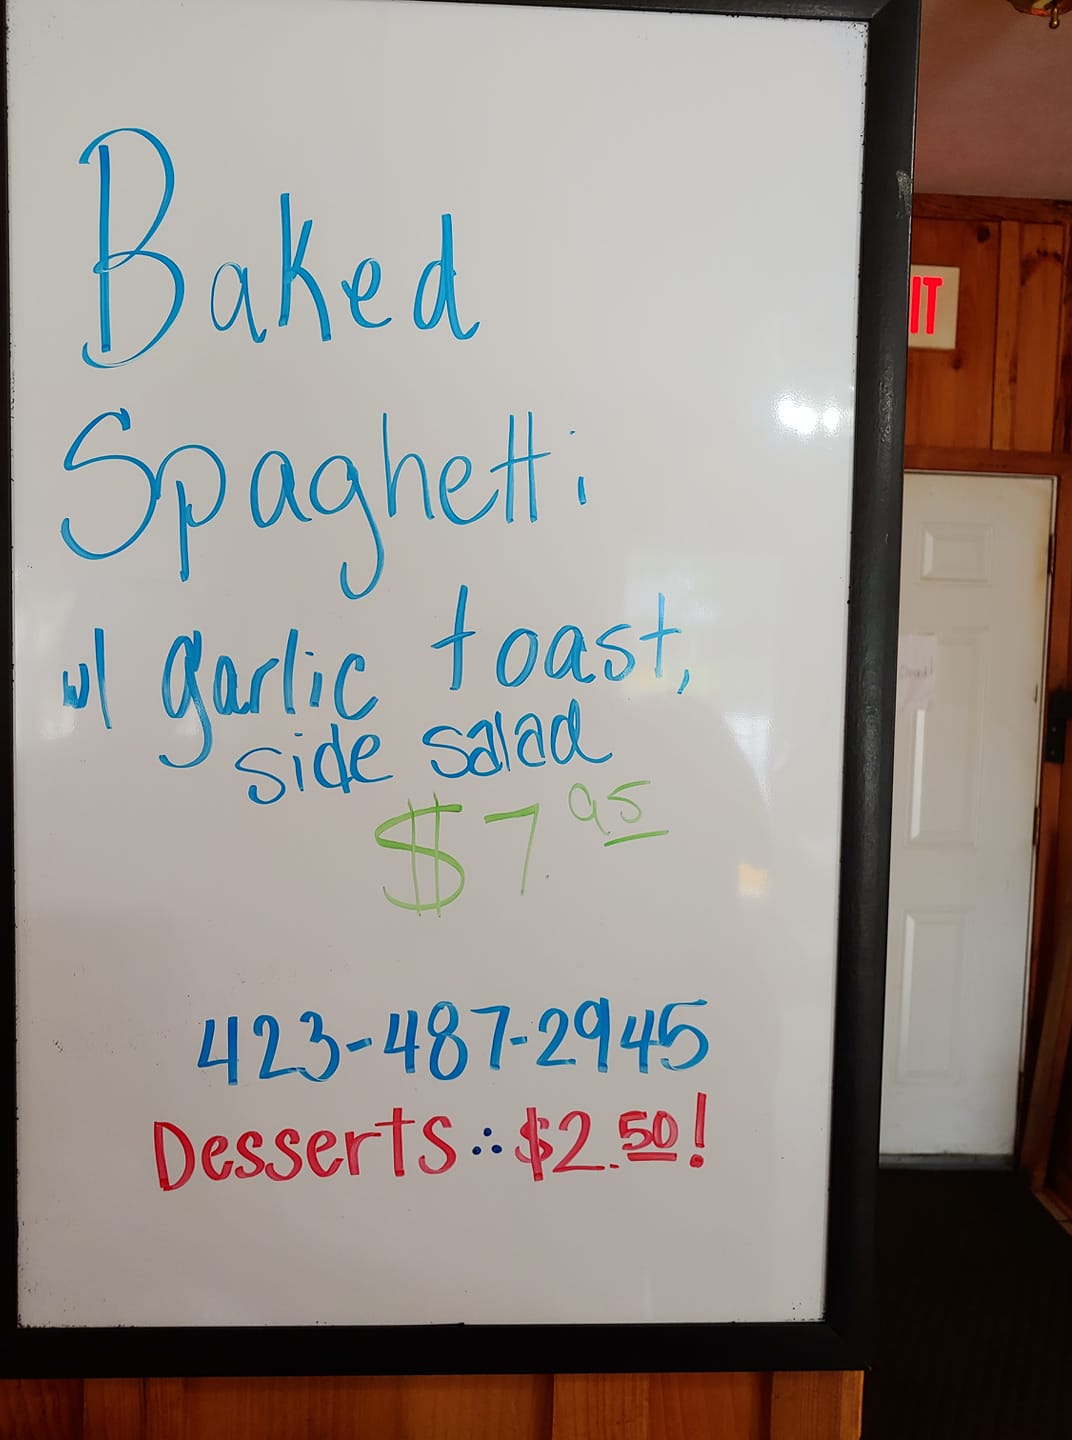 Baked
Spaghetti
w/ garlic toast,
side salad
$7.95
423-487-2945
Desserts ∴ $2.50!
IT